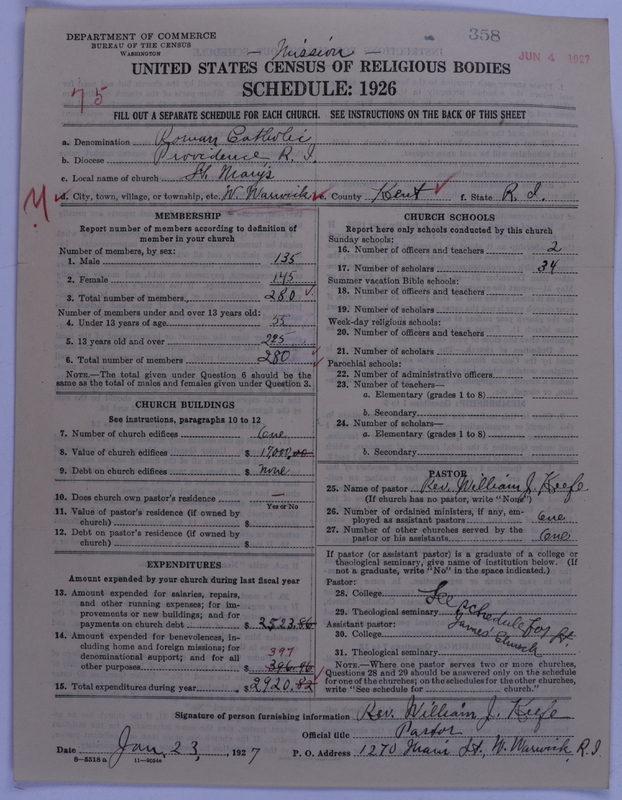 DEPARTMENT OF COMMERCE
BUREAU OF THE CENSUS
WASHINGTON
— Mission —
358
JUN 4 1927
UNITED STATES CENSUS OF RELIGIOUS BODIES
SCHEDULE: 1926
75
FILL OUT A SEPARATE SCHEDULE FOR EACH CHURCH. SEE INSTRUCTIONS ON THE BACK OF THIS SHEET
a. Denomination Roman Catholic
b. Diocese Providence R. I.
c. Local name of church St. Mary's
d. City, town, village, or township, etc. W. Warwick e. County Kent f. State R. I.
MEMBERSHIP
Report number of members according to definition of
member in your church
Number of members, by sex:
1. Male 135
2. Female 145
3. Total number of members 280
Number of members under and over 13 years old:
4. Under 13 years of age 55
5. 13 years old and over 225
6. Total number of members 280
NOTE.—The total given under Question 6 should be the
same as the total of males and females given under Question 3.
CHURCH BUILDINGS
See instructions, paragraphs 10 to 12
7. Number of church edifices One
8. Value of church edifices $ 17,000.00
9. Debt on church edifices $ None
10. Does church own pastor's residence —
Yes or No
11. Value of pastor's residence (if owned by
church) $
12. Debt on pastor's residence (if owned by
church) $
EXPENDITURES
Amount expended by your church during last fiscal year
13. Amount expended for salaries, repairs,
and other running expenses; for im-
provements or new buildings; and for
payments on church debt $ 2523.86
14. Amount expended for benevolences, in-
cluding home and foreign missions; for
denominational support; and for all
397
other purposes $ 396.96
15. Total expenditures during year $ 2920.82
CHURCH SCHOOLS
Report here only schools conducted by this church
Sunday schools:
16. Number of officers and teachers 2
17. Number of scholars 34
Summer vacation Bible schools:
18. Number of officers and teachers
19. Number of scholars
Week-day religious schools:
20. Number of officers and teachers
21. Number of scholars
Parochial schools:
22. Number of administrative officers
23. Number of teachers—
a. Elementary (grades 1 to 8)
b. Secondary
24. Number of scholars—
a. Elementary (grades 1 to 8)
b. Secondary
PASTOR
25. Name of pastor Rev. William J. Keefe
(If church has no pastor, write "None")
26. Number of ordained ministers, if any, em-
ployed as assistant pastors One
27. Number of other churches served by the
pastor or his assistants One
If pastor (or assistant pastor) is a graduate of a college or
theological seminary, give name of institution below. (If
not a graduate, write "No" in the space indicated.)
Pastor:
28. College See schedule for St.
29. Theological seminary James Church
Assistant pastor:
30. College
31. Theological seminary
NOTE.—Where one pastor serves two or more churches,
Questions 28 and 29 should be answered only on the schedule
for one of the churches; on the schedules for the other churches,
write "See schedule for church."
Signature of person furnishing information Rev. William J. Keefe
Official title Pastor
Date Jan. 23, 1927 P. O. Address 1270 Main St., W. Warwick, R.I.
8-5518 a